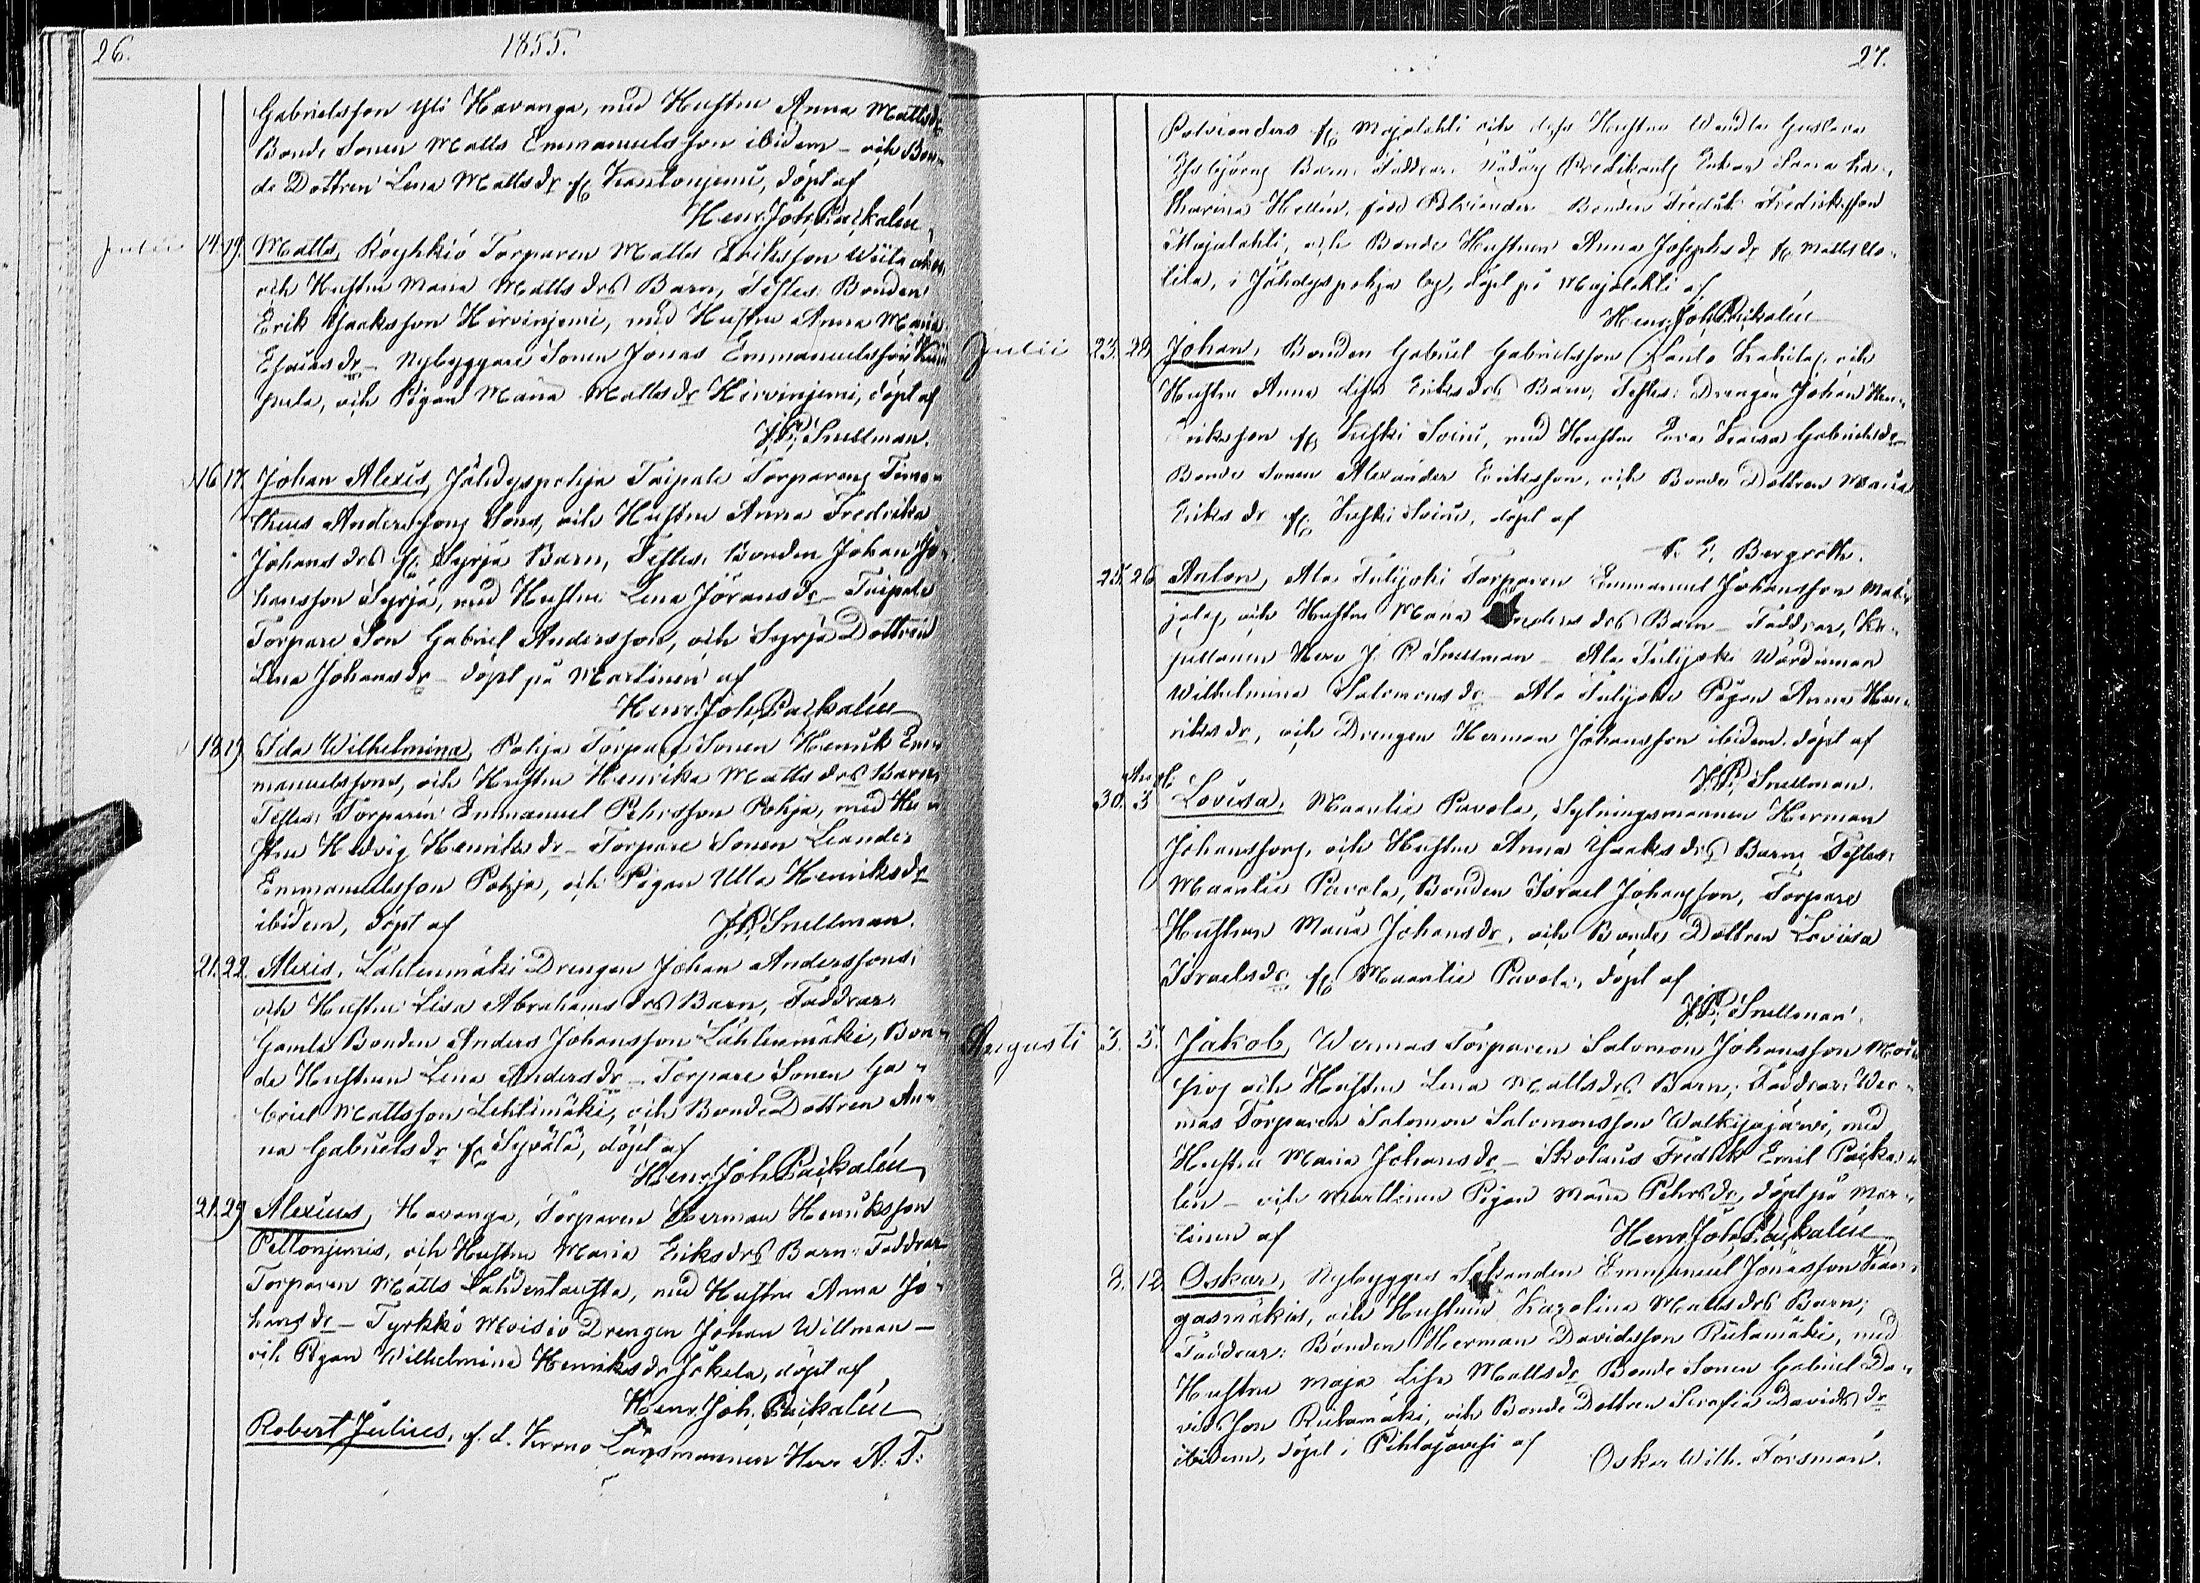 26.
1855.
Gabrielsson Yli Havanga, med Hustru Anna Mattsdr
Bonde Sonen Matts Emmanuelsson ibidem - och Bon-
de Dottren Lena Mattsdr fr. döpt af
Henr. Joh. Paikalén
Julii 14. 19. Matts, Röyhkiö Torparen Matts Eriksson
och Hustru Maria Mattsdrs Barn, Testes: Bonden
Erik Isaksson Hirvinjemi, med Hustru Anna Maria
Esaiasdr - Nybyggare Sonen Jonas Emmanuelsson
och Pigan Maria Mattsdr Hirvinjemi, döpt af
J. P. Snellman.
16. 17. Johan Alexis, Jähdyspohja Taipale Torparens Timo-
theus Anderssons Sons, och Hustru Anna Fredrika
Johansdrs fr. Syrjä Barn, Testes: Bonden Johan Jo-
hansson Syrjä, med Hustru Lena Jöransdr - Taipale
Torpare Son Gabriel Andersson, och Syrjä Dottren
Lena Johansdr - döpt på Martinen af
Henr. Joh. Paikalén
18. 19. Ida Wilhelmina, Pohja Torpare Sonen Henrik Em-
manuelssons, och Hustru Henrika Mattsdrs Barn,
Testes: Torparen Emmanuel Pehrsson Pohja, med Hu-
stru Hedvig Henriksdr - Torpare Sonen Leander
Emmanuelsson Pohja, och Pigan Ulla Henriksdr
ibidem, döpt af J. P. Snellman.
21. 22. Alexis, Lahlenmäki Drengen Johan Anderssons,
och Hustru Lisa Abrahamsdrs Barn, Faddrar:
Gamle Bonden Anders Johansson Lahlenmäki, Bon-
de Hustrun Lena Andersdr - Torpare Sonen Ga-
briel Mattsson Lehtimäki, och Bonde Dottren An-
na Gabrielsdr fr. Syvälä, döpt af
Henr. Joh. Paikalén
21. 29. Alexius, Havanga, Torparen Herman Henriksson
Peltonjemis, och Hustru Maria Eriksdrs Barn: Faddrar
Torparen Matts Lahdentausta, med Hustru Anna Jo-
hansdr - Tyrkkö Moisio Drengen Johan Willman -
och Pigan Wilhelmina Henriksdr Jokela, döpt af
Henr. Joh. Paikalén
Robert Julius, f. d. Krono Länsmannen Herr A. F.
27.
Polvianders fr. Majalahti och dess Hustru Wendla Gustava
Barn. Faddrar: Predikants Enkan
tharina Hellén, född Polviander Bonden Fredrik Fredriksson
Majalahti, och Bonde Hustrun Anna Josephsdr fr.
i Jähdyspohja by, döpt på Majalahti af
Henr. Joh. Paikalén
Julii 23. 28. Johan, Bonden Gabriel Gabrielsson och
Hustru Anna Lisa Eriksdrs Barn; Testes: Drengen Johan Hen-
riksson fr. med Hustru Eva Gabrielsdr
Bonde Sonen Alexander Eriksson, och Bonde Dottren Maria
Eriksdr fr. döpt af
Bergroth.
25. 26. Anton, Ala Tulijoki Torparen Emmanuel Johansson
och Hustru Maria Barn - Faddrar, Ka-
pellanen Herr J. P. Snellman - Ala Tulijoki Wärdinnan
Wilhelmina Salomonsdr - Ala Tulijoki Pigan Anna Hen-
riksdr, och Drengen Herman Johansson ibidem, döpt af
J. P. Snellman.
30. Aug. 3 Lovisa, Maantie Pavola, Sytningsmannen Herman
Johanssons, och Hustru Anna Isaksdrs Barn, Testes:
Maantie Pavola, Bonden Israel Johansson, Torpare
Hustrun Maria Johansdr, och Bonde Dottren Lovisa
Israelsdr fr. Maantie Pavola, döpt af
J. P. Snellman.
Augusti 3. 5. Jakob, Wermas Torparen Salomon Johansson
och Hustru Lena Mattsdrs Barn; Faddrar: Wer-
mas Torparen Salomon Salomonsson Walkijajärvi, med
Hustru Maria Johansdr - Skolaus Fredrik Emil Paika-
lén - och Martinen Pigan Maria Pehrsdr, döpt på Mar-
tinen af Henr. Joh. Paikalén
8. 12. Oskar, Nybygges Emmanuel Jonasson Kan-
gasmäkis, och Hustrus Karolina Mattsdrs Barn;
Faddrar: Bonden Herman Davidsson Riitamäki, med
Hustru Maja Lisa Mattsdr Bonde Sonen Gabriel Da-
vidsson Riitamäki, och Bonde Dottren Serafia Davidsdr
ibidem, döpt i Pihlajavesi af Oskar Wilh. Forsman.